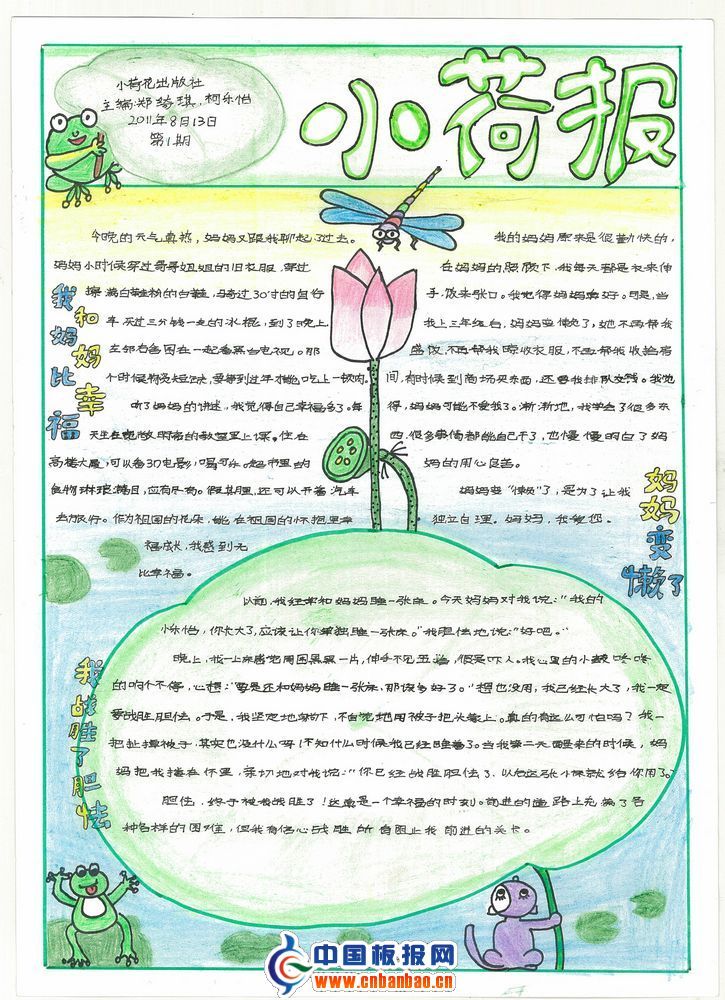 小荷报
小荷花出版社
主编:郑绮琪.柯乐怡
2011年8月13日
第1期
我和妈妈比幸福
今晚的天气真热,妈妈又跟我聊起了过去。
妈妈小时候穿过哥哥姐姐的旧衣服,穿过
擦满白鞋粉的白鞋,骑过30寸的自行
车,买过三分钱一支的冰棍,到了晚上,
左邻右舍围在一起看黑白电视。那
个时候物资短缺,要等到过年才能吃上一顿肉。
听了妈妈的讲述,我觉得自己幸福多了。每
天坐在宽敞明亮的教室里上课。住在
高楼大厦,可以看3D电影,喝可乐。超市里的
食物琳琅满目,应有尽有。假期里,还可以开着汽车
去旅行。作为祖国的花朵,能在祖国的怀抱里幸
福成长,我感到无
比幸福。
妈妈变懒了
我的妈妈原来是很勤快的,
在妈妈的照顾下,我每天都是衣来伸
手,饭来张口。我觉得妈妈真好。可是,当
我上三年级后,妈妈变懒了,她不再帮我
盛饭,不再帮我晾收衣服,不再帮我收拾房
间,有时候到商场买东西,还要我排队交钱。我觉
得,妈妈可能不爱我了。渐渐地,我学会了很多东
西,很多事情都能自己干了,也慢慢明白了妈
妈的用心良苦。
妈妈变“懒”了,是为了让我
独立自理。妈妈,我爱您。
我战胜了胆怯
以前,我经常和妈妈睡一张床。今天妈妈对我说:“我的
小乐怡,你长大了,应该让你单独睡一张床。”我胆怯地说:“好吧。”
晚上,我一上床感觉周围黑黑一片,伸手不见五指,很是吓人。我心里的小鼓咚咚
的响个不停,心想:“要是还和妈妈睡一张床,那该多好了。”想也没用,我已经长大了,我一定
要战胜胆怯。于是,我坚定地躺下,不自觉地用被子把头蒙上。真的有这么可怕吗?我一
把扯掉被子,其实也没什么呀!不知什么时候我已经睡着了。当我第二天醒来的时候,妈
妈把我搂在怀里,亲切地对我说:“你已经战胜胆怯了,以后这张小床就给你用了。”
胆怯,终于被我战胜了!这真是一个幸福的时刻。前进的道路上充满了各
种各样的困难,但我有信心战胜所有阻止我前进的关卡。
中国板报网
www.cnbanbao.cn